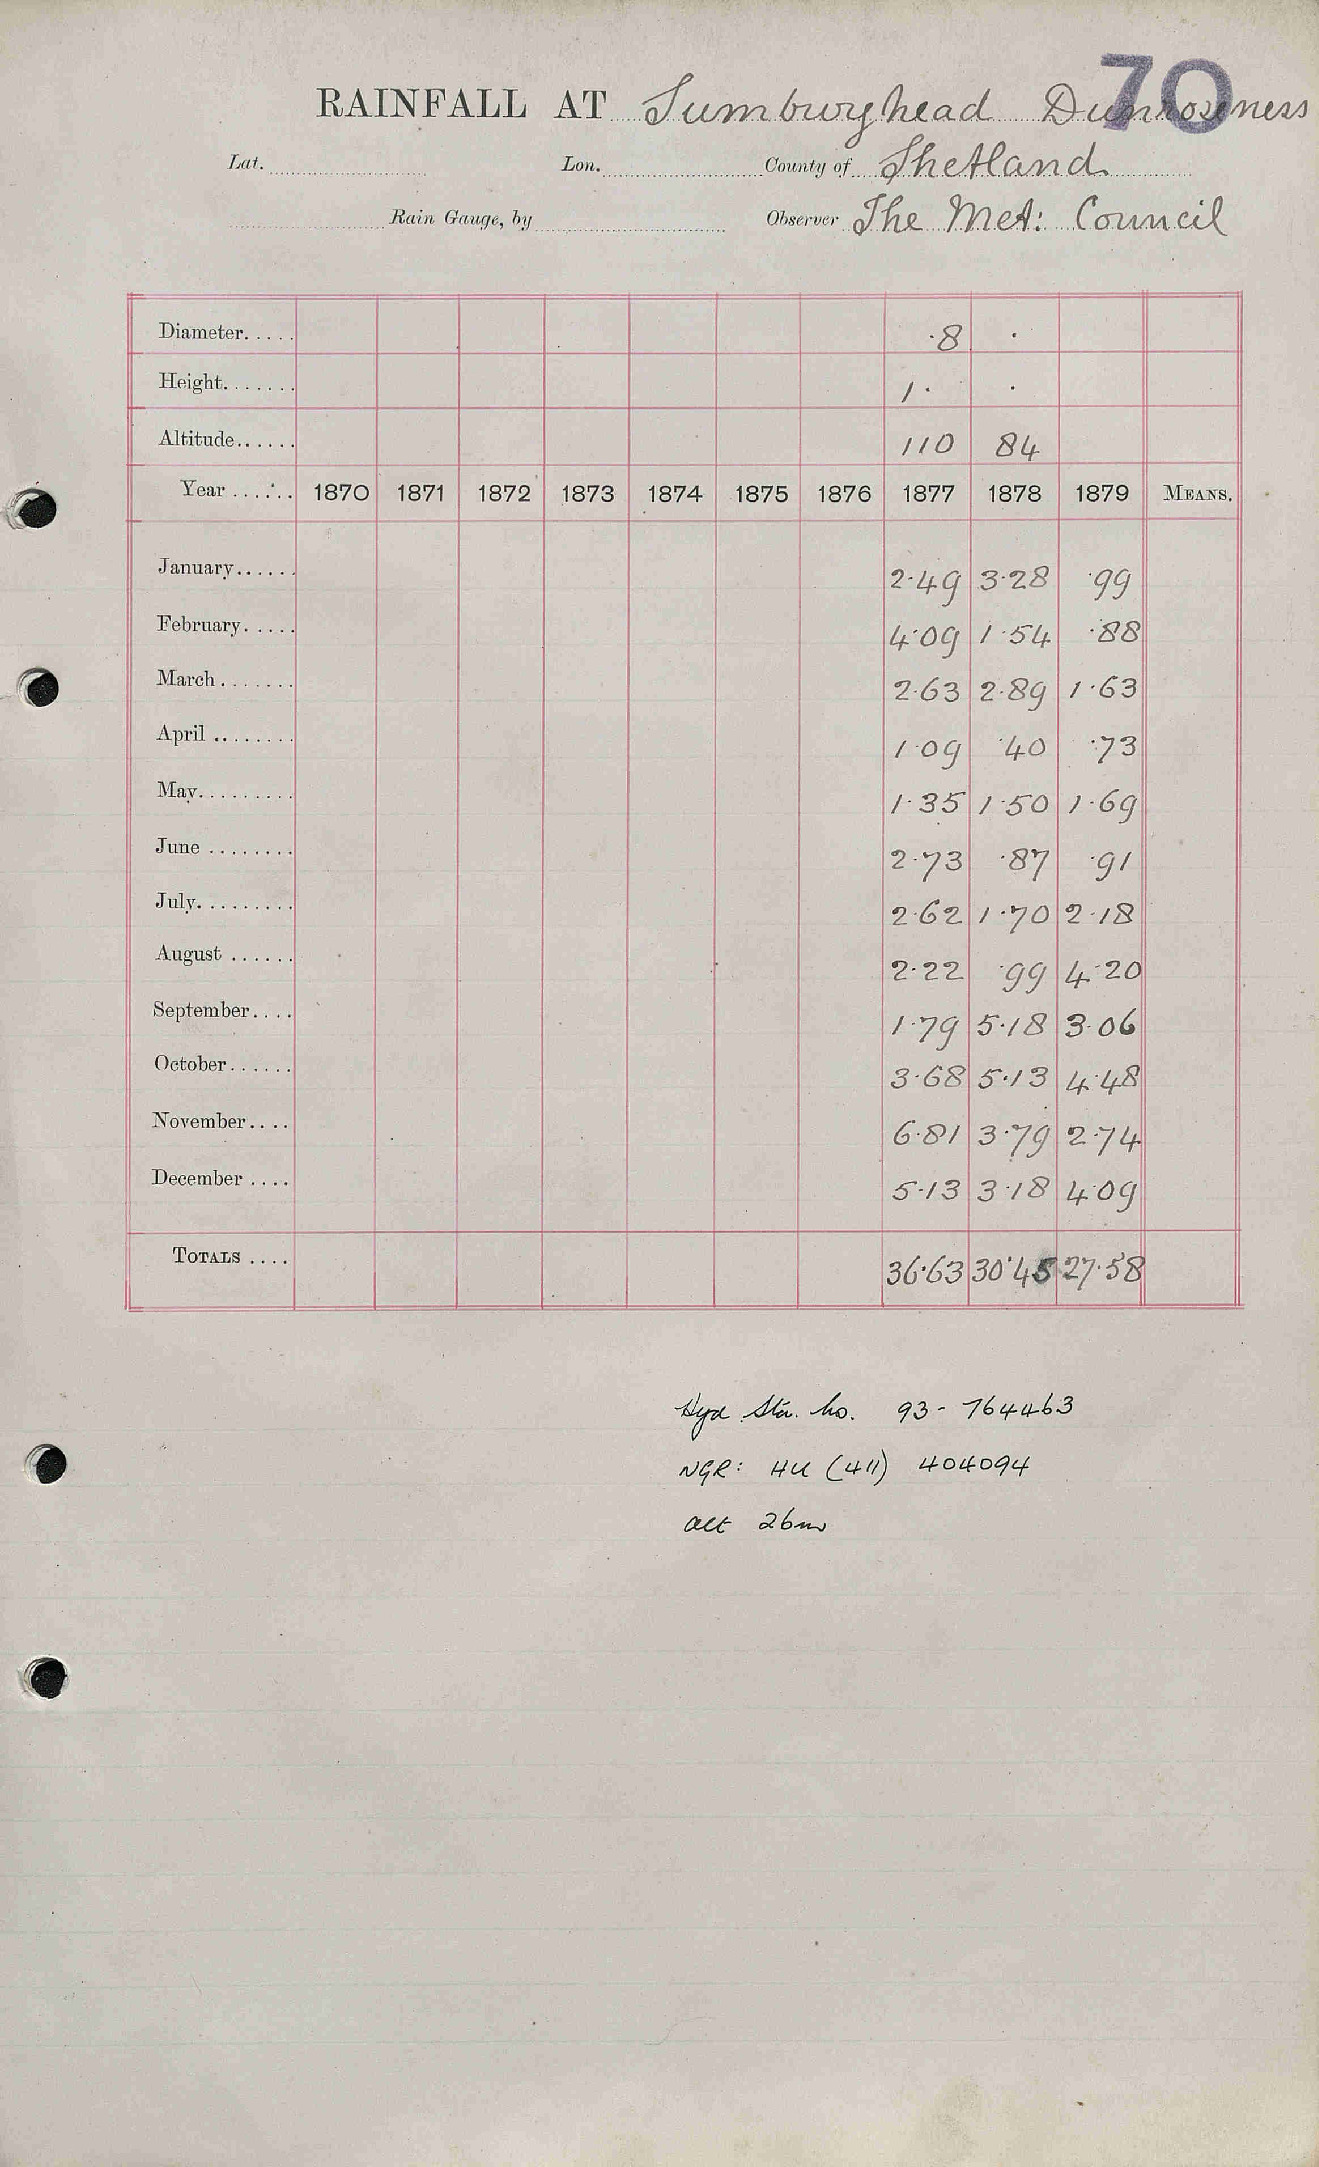 70
RAINFALL AT Sumburghead Dunrossness
Lat. Lon. County of Shetland
Rain Gauge, by Observer The Met: Council
Diameter..... ·8 ·
Height....... 1· ·
Altitude...... 110 84
Year ...... 1870 1871 1872 1873 1874 1875 1876 1877 1878 1879 MEANS.
January...... 2·49 3·28 ·99
February..... 4·09 1·54 ·88
March....... 2·63 2·89 1·63
April ........ 1·09 ·40 ·73
May......... 1·35 1·50 1·69
June ........ 2·73 ·87 ·91
July......... 2·62 1·70 2·18
August ...... 2·22 ·99 4·20
September.... 1·79 5·18 3·06
October...... 3·68 5·13 4·48
November.... 6·81 3·79 2·74
December .... 5·13 3·18 4·09
TOTALS .... 36·63 30·45 27·58
Hyd Stn. No. 93- 764463
NGR: HU (411) 404094
alt 26m